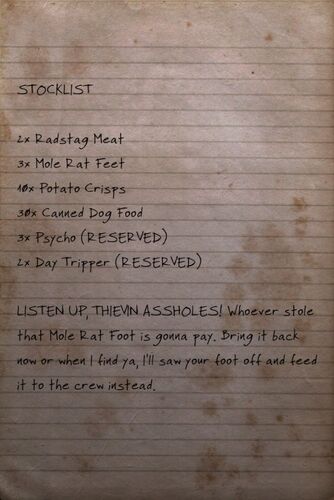 STOCKLIST
2x Radstag Meat
3x Mole Rat Feet
10x Potato Crisps
30x Canned Dog Food
3x Psycho (RESERVED)
2x Day Tripper (RESERVED)
LISTEN UP, THIEVIN ASSHOLES! Whoever stole
that Mole Rat Foot is gonna pay. Bring it back
now or when I find ya, I'll saw your foot off and feed
it to the crew instead.